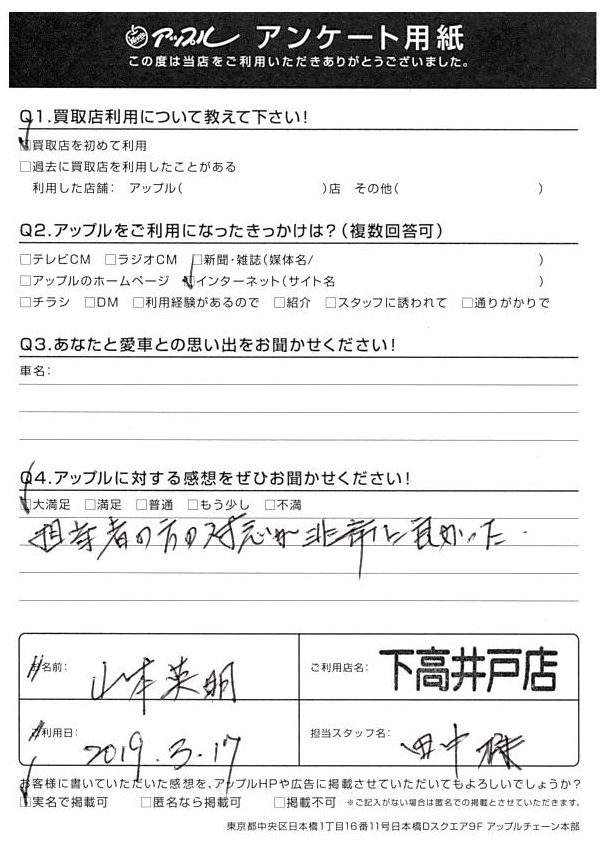 アップル アンケート用紙
この度は当店をご利用いただきありがとうございました。
Q1.買取店利用について教えて下さい!
□買取店を初めて利用
□過去に買取店を利用したことがある
利用した店舗: アップル( )店 その他( )
Q2.アップルをご利用になったきっかけは?(複数回答可)
□テレビCM □ラジオCM □新聞・雑誌(媒体名/ )
□アップルのホームページ □インターネット(サイト名 )
□チラシ □DM □利用経験があるので □紹介 □スタッフに誘われて □通りがかりで
Q3.あなたと愛車との思い出をお聞かせください!
車名:
Q4.アップルに対する感想をぜひお聞かせください!
□大満足 □満足 □普通 □もう少し □不満
担当者の方の対応が非常に良かった.
お名前: 山本英明
ご利用店名: 下高井戸店
ご利用日: 2019.3.17
担当スタッフ名: 田中様
お客様に書いていただいた感想を、アップルHPや広告に掲載させていただいてもよろしいでしょうか?
□実名で掲載可 □匿名なら掲載可 □掲載不可 ※ご記入がない場合は匿名での掲載とさせていただきます。
東京都中央区日本橋1丁目16番11号日本橋Dスクエア9F アップルチェーン本部